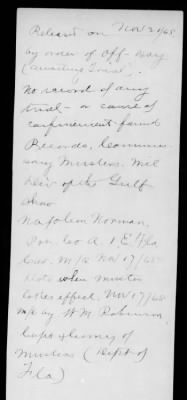 Release on Nov 30/65
by order of Off. Comdg
(awaiting Trial).
No record of any
trial - or cause of
confinement found
Records, Commis-
sary Musters. Mil
Div of the Gulf
show
Napoleon Norman,
Pvt. Co A. 1 E. Fla
Cav. M/O Nov 17/65
Note when muster
takes effect, Nov 17/65
m/o by W M Robinson
Capt & Comsy of
Musters (Dept of
Fla)